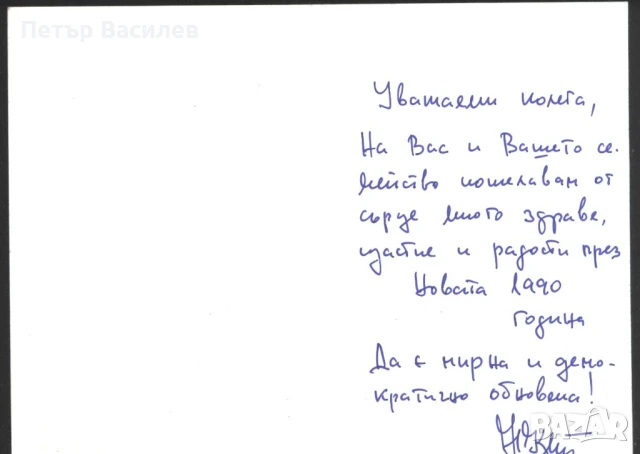 Петър Василев
Уважаеми колега,
На Вас и Вашето се-
мейство пожелавам от
сърце много здраве,
щастие и радости през
Новата 1990
година
Да е мирна и демо-
кратично обновена!
BAZAR